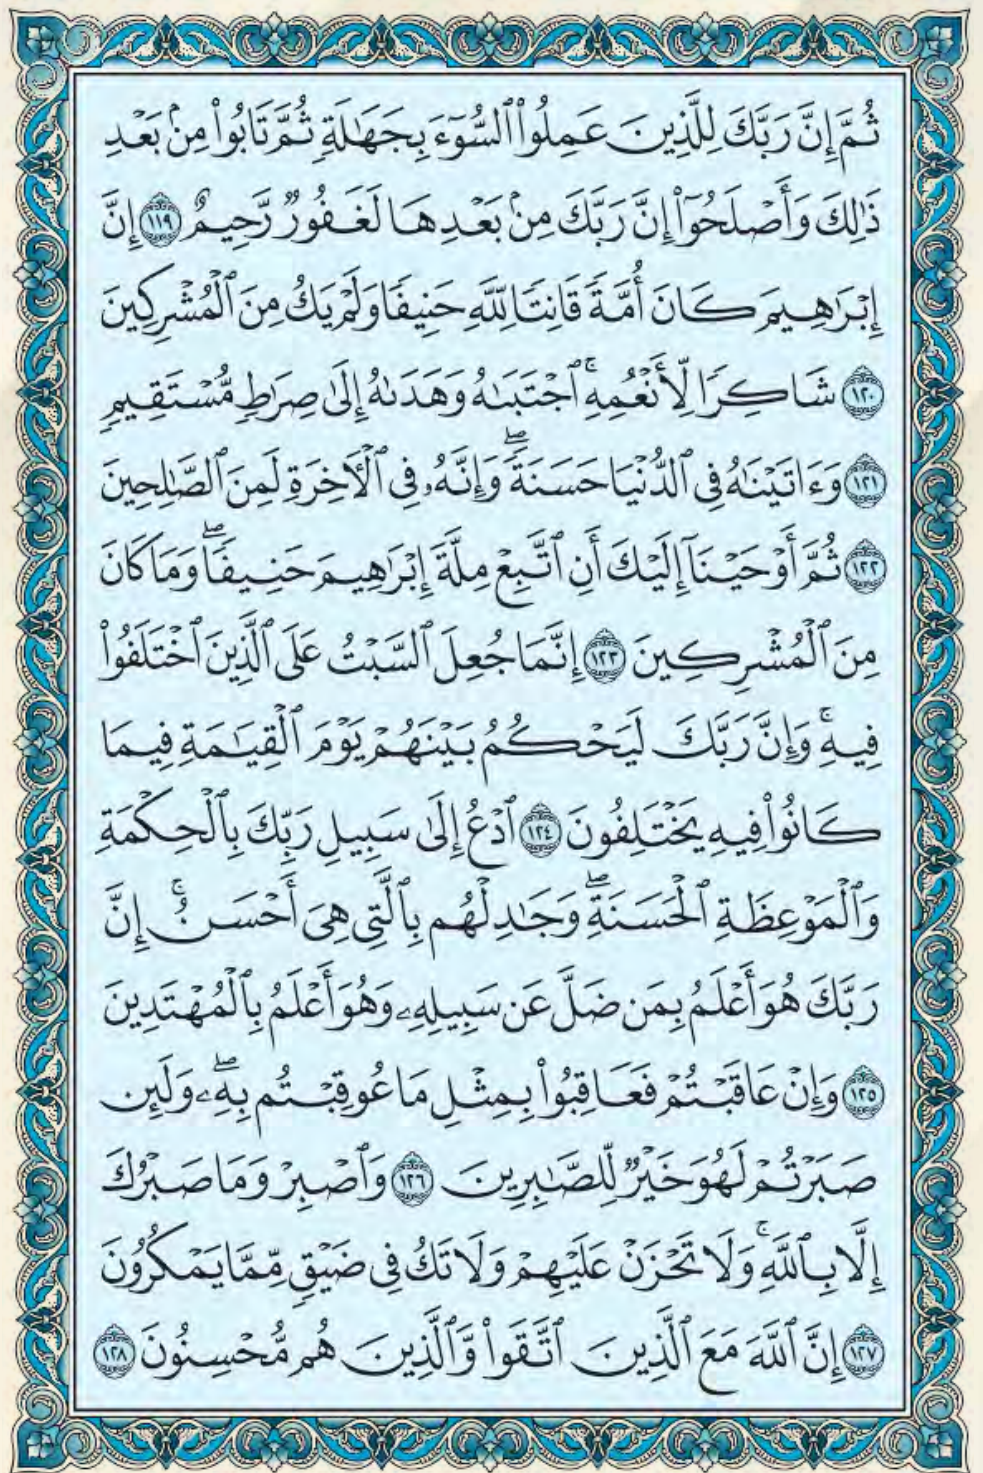 ثُمَّ إِنَّ رَبَّكَ لِلَّذِينَ عَمِلُوا۟ ٱلسُّوٓءَ بِجَهَٰلَةٍ ثُمَّ تَابُوا۟ مِنۢ بَعْدِ
ذَٰلِكَ وَأَصْلَحُوٓا۟ إِنَّ رَبَّكَ مِنۢ بَعْدِهَا لَغَفُورٌ رَّحِيمٌ ١١٩ إِنَّ
إِبْرَٰهِيمَ كَانَ أُمَّةً قَانِتًا لِّلَّهِ حَنِيفًا وَلَمْ يَكُ مِنَ ٱلْمُشْرِكِينَ
١٢٠ شَاكِرًا لِّأَنْعُمِهِ ۚ ٱجْتَبَىٰهُ وَهَدَىٰهُ إِلَىٰ صِرَٰطٍ مُّسْتَقِيمٍ
١٢١ وَءَاتَيْنَٰهُ فِى ٱلدُّنْيَا حَسَنَةً ۖ وَإِنَّهُۥ فِى ٱلْـَٔاخِرَةِ لَمِنَ ٱلصَّٰلِحِينَ
١٢٢ ثُمَّ أَوْحَيْنَآ إِلَيْكَ أَنِ ٱتَّبِعْ مِلَّةَ إِبْرَٰهِيمَ حَنِيفًا ۖ وَمَا كَانَ
مِنَ ٱلْمُشْرِكِينَ ١٢٣ إِنَّمَا جُعِلَ ٱلسَّبْتُ عَلَى ٱلَّذِينَ ٱخْتَلَفُوا۟
فِيهِ ۚ وَإِنَّ رَبَّكَ لَيَحْكُمُ بَيْنَهُمْ يَوْمَ ٱلْقِيَٰمَةِ فِيمَا
كَانُوا۟ فِيهِ يَخْتَلِفُونَ ١٢٤ ٱدْعُ إِلَىٰ سَبِيلِ رَبِّكَ بِٱلْحِكْمَةِ
وَٱلْمَوْعِظَةِ ٱلْحَسَنَةِ ۖ وَجَٰدِلْهُم بِٱلَّتِى هِىَ أَحْسَنُ ۚ إِنَّ
رَبَّكَ هُوَ أَعْلَمُ بِمَن ضَلَّ عَن سَبِيلِهِۦ وَهُوَ أَعْلَمُ بِٱلْمُهْتَدِينَ
١٢٥ وَإِنْ عَاقَبْتُمْ فَعَاقِبُوا۟ بِمِثْلِ مَا عُوقِبْتُم بِهِۦ ۖ وَلَئِن
صَبَرْتُمْ لَهُوَ خَيْرٌ لِّلصَّٰبِرِينَ ١٢٦ وَٱصْبِرْ وَمَا صَبْرُكَ
إِلَّا بِٱللَّهِ ۚ وَلَا تَحْزَنْ عَلَيْهِمْ وَلَا تَكُ فِى ضَيْقٍ مِّمَّا يَمْكُرُونَ
١٢٧ إِنَّ ٱللَّهَ مَعَ ٱلَّذِينَ ٱتَّقَوا۟ وَّٱلَّذِينَ هُم مُّحْسِنُونَ ١٢٨